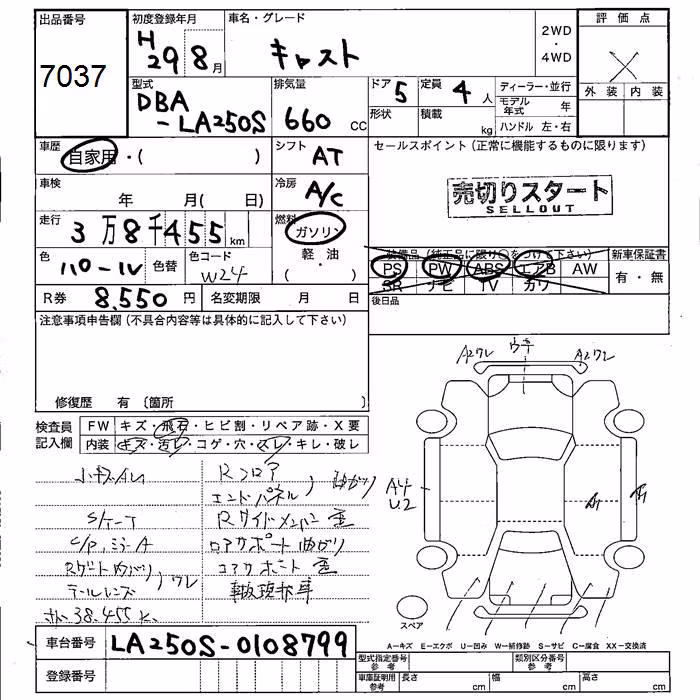 出品番号
7037
初度登録年月
H29 8月
車名・グレード
キャスト
2WD
・
4WD
評価点
X
外装 内装
型式
DBA
-LA250S
排気量
660 CC
ドア 5
定員 4人
形状
積載 kg
ディーラー・並行
モデル年式 年
ハンドル 左・右
車歴
自家用・( )
シフト
AT
セールスポイント(正常に機能するものに限ります)
売切りスタート
SELLOUT
車検
年 月( 日)
冷房
A/C
走行
3万8千455km
燃料
ガソリン
軽・油
( )
色
パール
色替
色コード
W24
装備品(純正品に限り○をつけて下さい)
PS PW ABS エアB AW
SR ナビ TV カワ
新車保証書
有・無
R券 8,550円
名変期限 月 日
後日品
注意事項申告欄(不具合内容等は具体的に記入して下さい)
修復歴 有〔箇所
検査員
記入欄
FW キズ・飛石・ヒビ割・リペア跡・X要
内装 キズ・汚レ・コゲ・穴・スレ・キレ・破レ
Rフロア
エンドパネル)曲がり
Rサイドメンバー歪
C/P,ミラーA
ロアサポート曲がり
Rゲート曲がり
テールレンズ)ワレ
コアサポート歪
事故現状車
38,455k
A2ワレ
A2ワレ
A4
U2
A1
A1
スペア
A=キズ E=エクボ U=凹み W=補修跡 S=サビ C=腐食 XX=交換済
車台番号 LA250S-0108799
登録番号
型式指定番号
参考
類別区分番号
参考
車庫証明用
参考
長さ cm
幅 cm
高さ cm